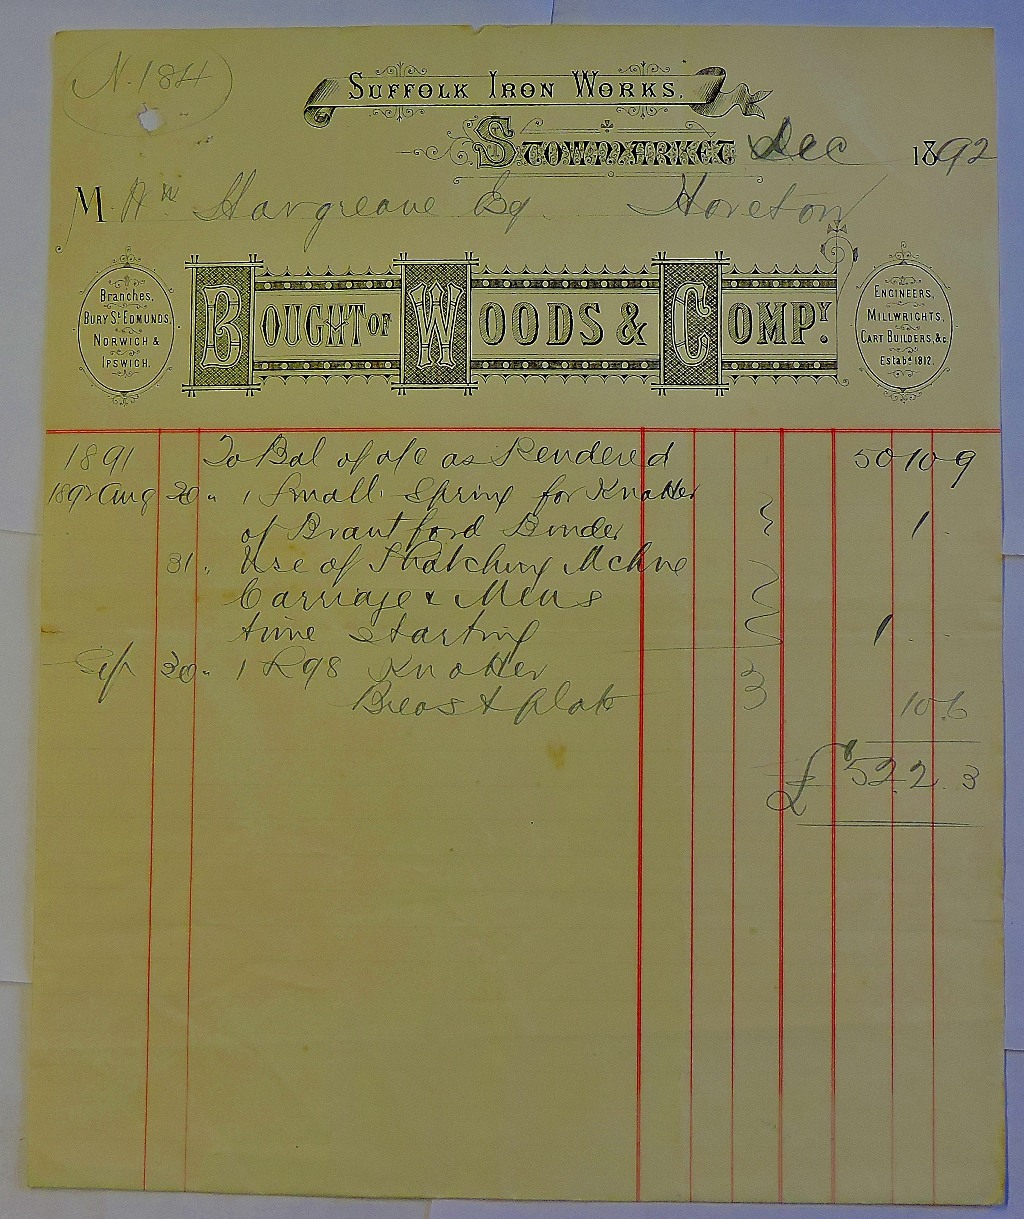 N. 184
SUFFOLK IRON WORKS.
STOWMARKET Dec 1892
M Wm Hargreave Esq. Hoveton
Branches,
BURY ST. EDMUNDS,
NORWICH &
IPSWICH.
BOUGHT OF WOODS & COMPY.
ENGINEERS,
MILLWRIGHTS,
CART BUILDERS, &c.
Estabd. 1812.
1891 To Bal of a/c as Rendered 50 10 9
1892 Aug 20 " 1 Small Spring for Knotter
of Brantford Binder 1 .
31 " Use of Thatching Mchne
Carriage & Mens
time starting 1 . .
Sep 30 " 1 R98 Knotter
Breast plate 10.6
£52.2.3